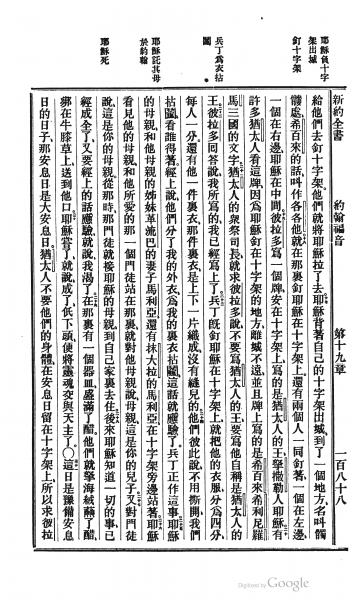 新約全書
約翰福音
第十九章
一百八十八
耶穌負十字架出城
釘十字架
兵丁爲衣拈鬮
耶穌託其母於約翰
耶穌死
給他們去釘十字架他們就將耶穌拉了去耶穌背著自己的十字架出城到了一個地方名叫髑
髏處希百來的話叫作各各他就在那裏釘耶穌在十字架上還有兩個人一同釘著一個在左邊
一個在右邊耶穌在中間彼拉多寫一個牌安在十字架上寫的是猶太人的王拿撒勒人耶穌有
許多猶太人看這牌因爲耶穌釘在十字架的地方離城不遠並且牌上寫的是希百來希利尼羅
馬三國的文字猶太人的衆祭司長就求彼拉多說不要寫猶太人的王要寫他自稱是猶太人的
王彼拉多回答說我所寫的我已經寫上了兵丁旣釘耶穌在十字架上就把他的衣服分爲四分
每人一分還有他一件裏衣那件裏衣是上下一片織成沒有縫兒的他們彼此說不用撕開我們
拈鬮看誰得著經上說他們分了我的外衣爲我的裏衣拈鬮這話就應驗了兵丁正作這事耶穌
的母親和他母親的姊妹革流巴的妻子馬利亞還有抹大拉的馬利亞在十字架旁邊站著耶穌
看見他的母親和他所愛的那一個門徒站在那裏就對他母親說母親這是你的兒子又對門徒
說這是你的母親從那時那門徒就接耶穌的母親到自己家裏去住後來耶穌知道一切的事已
經成全了又要經上的話應驗就說我渴了在那裏有一個器皿盛滿了醋他們就拏海絨蘸了醋
綁在牛膝草上送到他口耶穌嘗了就說成了低下頭便將靈魂交與天主了〇這日是豫備安息
日的日子那安息日是大安息日猶太人不要他們的身體在安息日留在十字架上所以求彼拉
Digitized by Google